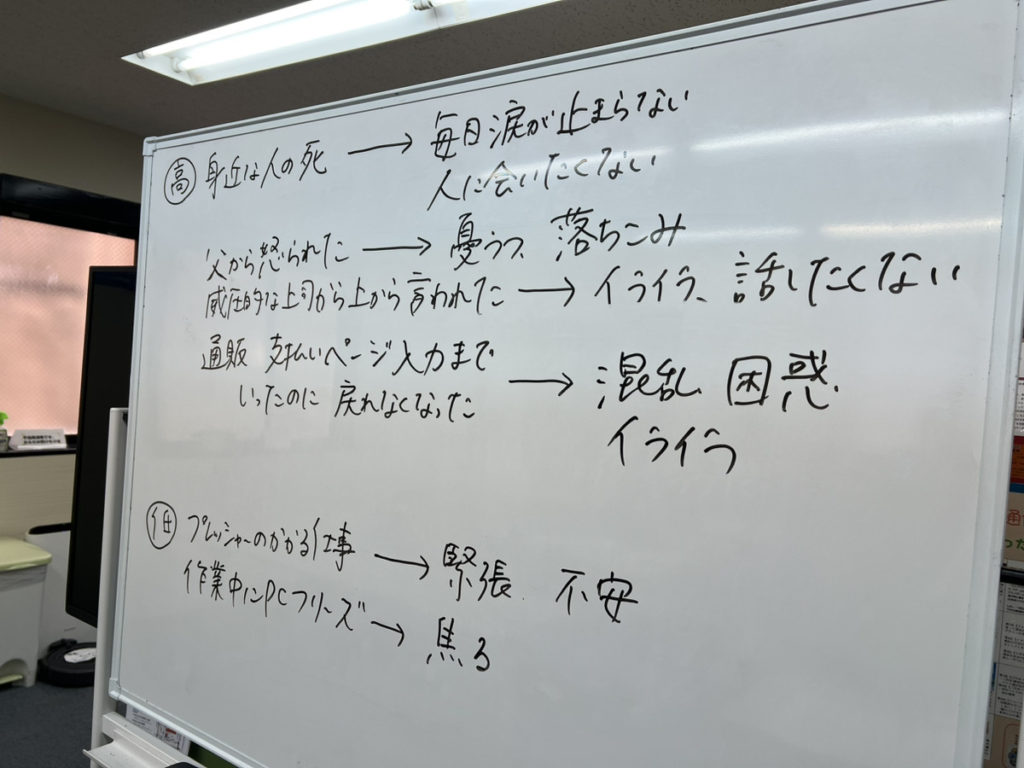 高 身近な人の死 → 毎日涙が止まらない
人に会いたくない
父から怒られた → 憂うつ、落ちこみ
威圧的な上司から上から言われた → イライラ、話したくない
通販 支払いページ入力まで
いったのに 戻れなくなった → 混乱、困惑、
イライラ
低 プレッシャーのかかる仕事 → 緊張、不安
作業中にPCフリーズ → 焦る